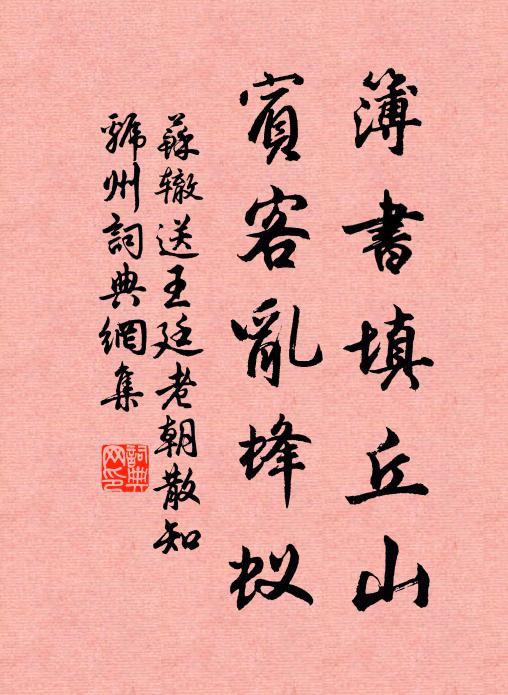 簿書填丘山
賓客亂蜂蚁
蘇辙送王廷老朝散知
虢州詞典網集
詞典网印